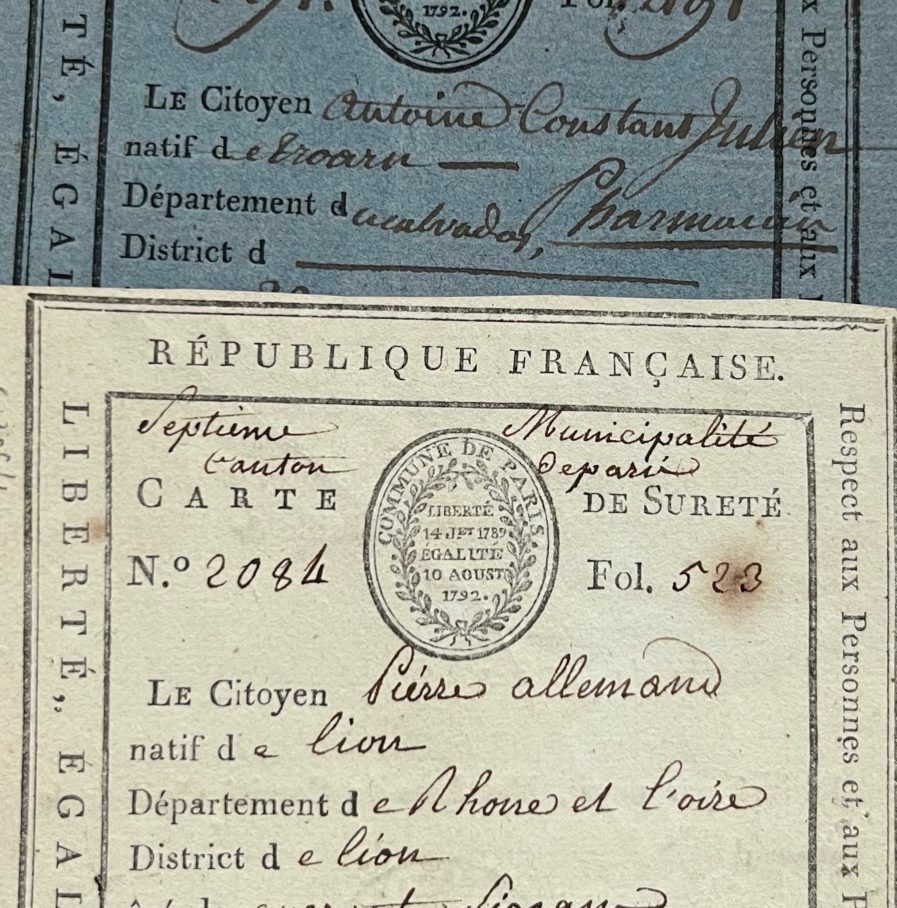 1792.
Fol.
LE Citoyen Antoine Constant Julien
natif de troarn
Département du calvados, Pharmacien
District d
TÉ, ÉGAL
x Personnes et aux
RÉPUBLIQUE FRANÇAISE.
LIBERTÉ, ÉGAL
Respect aux Personnes et aux P
Septieme Municipalité
Canton Deparis
CARTE DE SURETÉ
COMMUNE DE PARIS.
LIBERTÉ
14 JET 1789
ÉGALITÉ
10 AOUST
1792.
N.º 2084 Fol. 523
LE Citoyen Piérre allemand
natif de lion
Département de Rhone et l'oire
District de lion